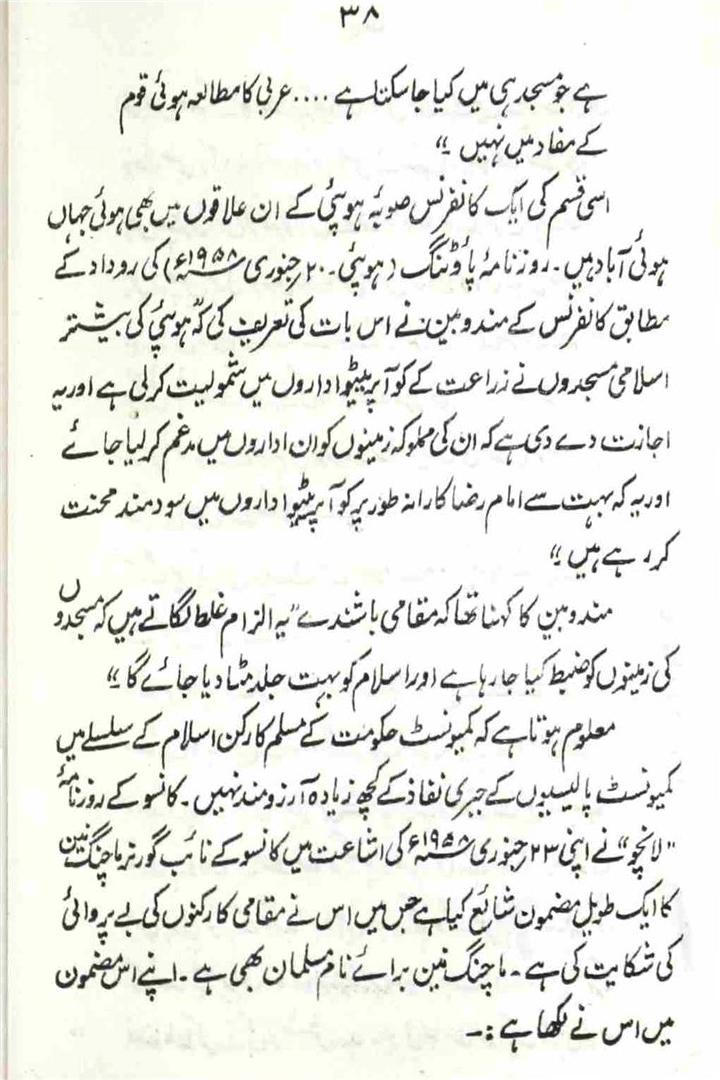 ۳۸
ہے جو مسجد ہی میں کیا جا سکتا ہے .... عربی کا مطالعہ ہوئی قوم
کے مفاد میں نہیں "
اسی قسم کی ایک کانفرنس صوبۂ ہوپئی کے ان علاقوں میں بھی ہوئی جہاں
ہوئی آباد ہیں۔ روزنامۂ پاؤٹنگ (ہوپئی۔ ۲۰ جنوری ۱۹۵۸ء) کی روداد کے
مطابق کانفرنس کے مندوبین نے اس بات کی تعریف کی کہ "ہوپئی کی بیشتر
اسلامی مسجدوں نے زراعت کے کوآپریٹیو اداروں میں شمولیت کر لی ہے اور یہ
اجازت دے دی ہے کہ ان کی مملوکہ زمینوں کو ان اداروں میں مدغم کر لیا جائے
اور یہ کہ بہت سے امام رضا کارانہ طور پر کوآپریٹیو اداروں میں سود مند محنت
کر رہے ہیں "
مندوبین کا کہنا تھا کہ مقامی باشندے "یہ الزام غلط لگاتے ہیں کہ مسجدوں
کی زمینوں کو ضبط کیا جا رہا ہے اور اسلام کو بہت جلد مٹا دیا جائے گا "
معلوم ہوتا ہے کہ کمیونسٹ حکومت کے مسلم کارکن اسلام کے سلسلے میں
کمیونسٹ پالیسیوں کے جبری نفاذ کے کچھ زیادہ آرزو مند نہیں۔ کانسو کے روزنامۂ
"لانچو" نے اپنی ۲۳ جنوری ۱۹۵۸ء کی اشاعت میں کانسو کے نائب گورنر ما چنگ نین
کا ایک طویل مضمون شائع کیا ہے جس میں اس نے مقامی کارکنوں کی بے پروائی
کی شکایت کی ہے۔ ما چنگ نین برائے نام مسلمان بھی ہے۔ اپنے اس مضمون
میں اس نے لکھا ہے :۔